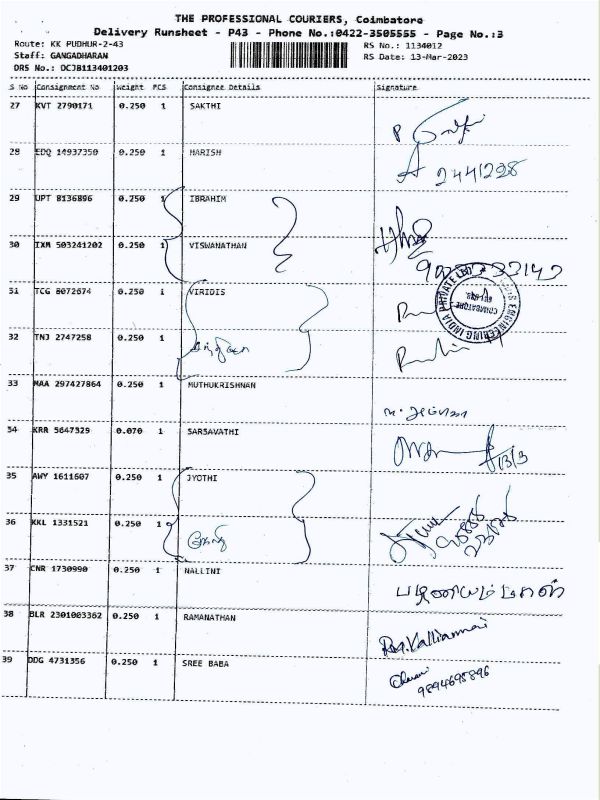 THE PROFESSIONAL COURIERS, Coimbatore
Delivery Runsheet - P43 - Phone No.:0422-3505555 - Page No.:3
Route: KK PUDHUR-2-43 RS No.: 1134012
Staff: GANGADHARAN RS Date: 13-Mar-2023
DRS No.: DCJB113401203
S No Consignment No Weight PCS Consignee Details Signature
27 KVT 2790171 0.250 1 SAKTHI
28 EDQ 14937350 0.250 1 HARISH 2441228
29 UPT 8136896 0.250 1 IBRAHIM
30 IXM 503241202 0.250 1 VISWANATHAN
31 TCG 8072674 0.250 1 VIRIDIS
32 TNJ 2747258 0.250 1
33 MAA 297427864 0.250 1 MUTHUKRISHNAN
34 KRR 5647329 0.070 1 SARSAVATHI 13/3
35 AWY 1611607 0.250 1 JYOTHI
36 KKL 1331521 0.250 1
37 CNR 1730990 0.250 1 NALLINI
38 BLR 2301003362 0.250 1 RAMANATHAN RM.Valliammai
39 DDG 4731356 0.250 1 SREE BABA
9894698896